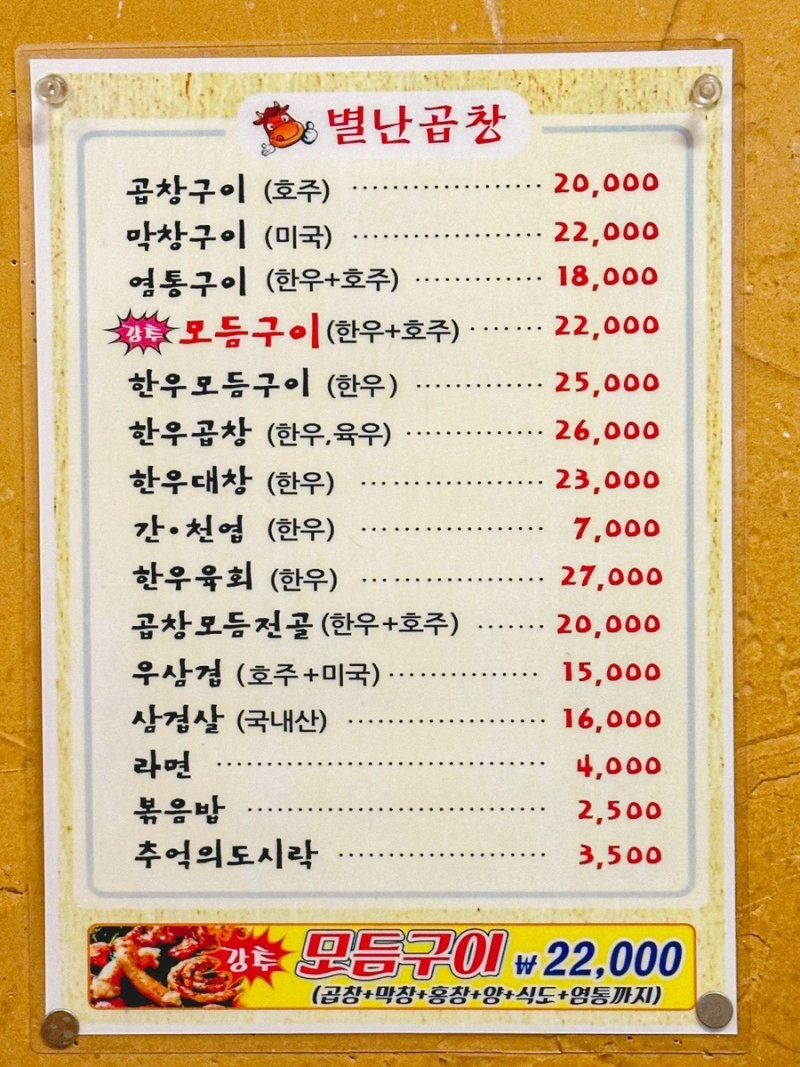 별난곱창
곱창구이 (호주) 20,000
막창구이 (미국) 22,000
염통구이 (한우+호주) 18,000
강추 모듬구이 (한우+호주) 22,000
한우모듬구이 (한우) 25,000
한우곱창 (한우,육우) 26,000
한우대창 (한우) 23,000
간·천엽 (한우) 7,000
한우육회 (한우) 27,000
곱창모듬전골 (한우+호주) 20,000
우삼겹 (호주+미국) 15,000
삼겹살 (국내산) 16,000
라면 4,000
볶음밥 2,500
추억의도시락 3,500
강추 모듬구이 ₩22,000
(곱창+막창+홍창+양+식도+염통까지)